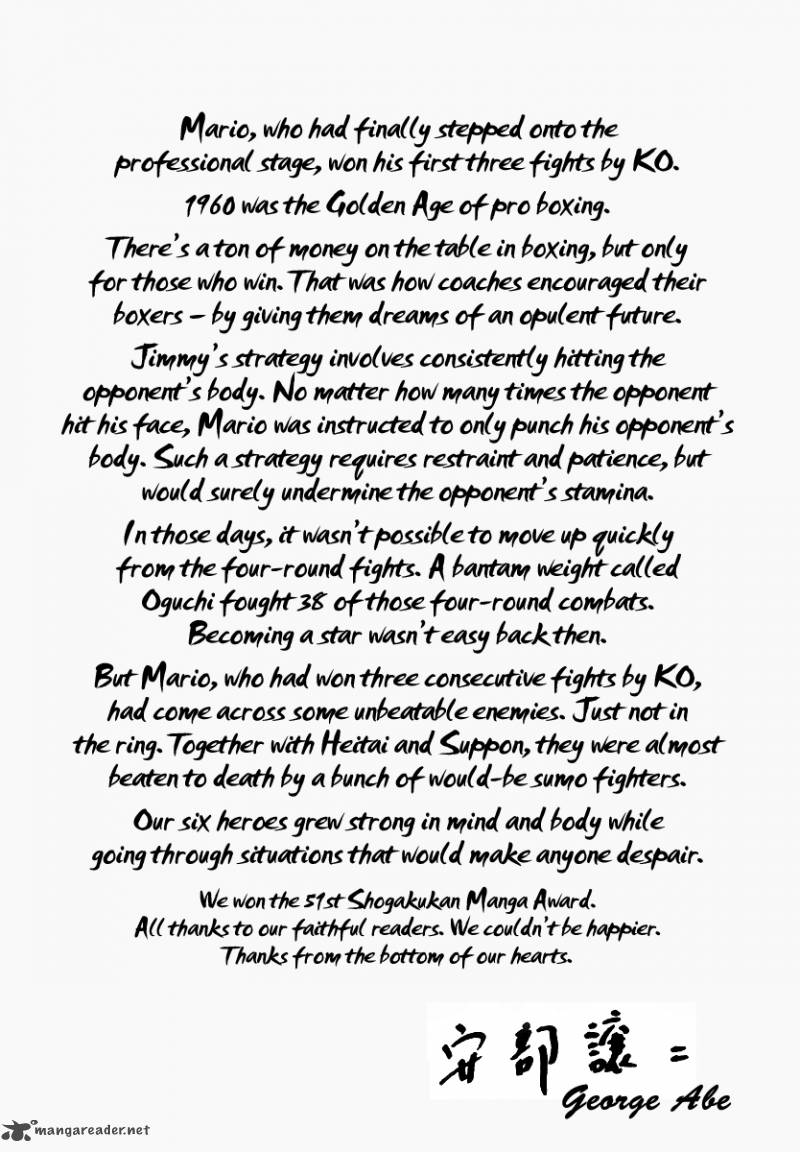 Mario, who had finally stepped onto the
professional stage, won his first three fights by KO.
1960 was the Golden Age of pro boxing.
There's a ton of money on the table in boxing, but only
for those who win. That was how coaches encouraged their
boxers – by giving them dreams of an opulent future.
Jimmy's strategy involves consistently hitting the
opponent's body. No matter how many times the opponent
hit his face, Mario was instructed to only punch his opponent's
body. Such a strategy requires restraint and patience, but
would surely undermine the opponent's stamina.
In those days, it wasn't possible to move up quickly
from the four-round fights. A bantam weight called
Oguchi fought 38 of those four-round combats.
Becoming a star wasn't easy back then.
But Mario, who had won three consecutive fights by KO,
had come across some unbeatable enemies. Just not in
the ring. Together with Heitai and Suppon, they were almost
beaten to death by a bunch of would-be sumo fighters.
Our six heroes grew strong in mind and body while
going through situations that would make anyone despair.
We won the 51st Shogakukan Manga Award.
All thanks to our faithful readers. We couldn't be happier.
Thanks from the bottom of our hearts.
安部譲二
George Abe
mangareader.net